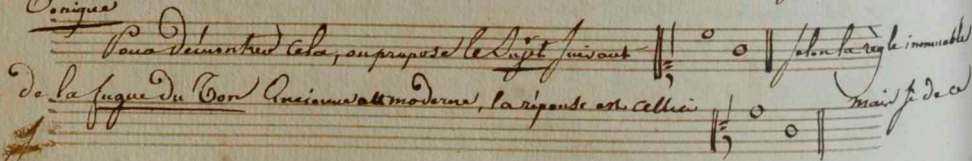 Tonique
Pour démontrer cela, on propose le Sujet suivant selon la règle immuable
de la fugue du Ton Ancienne moderne, la réponse est celleci mais si de ce